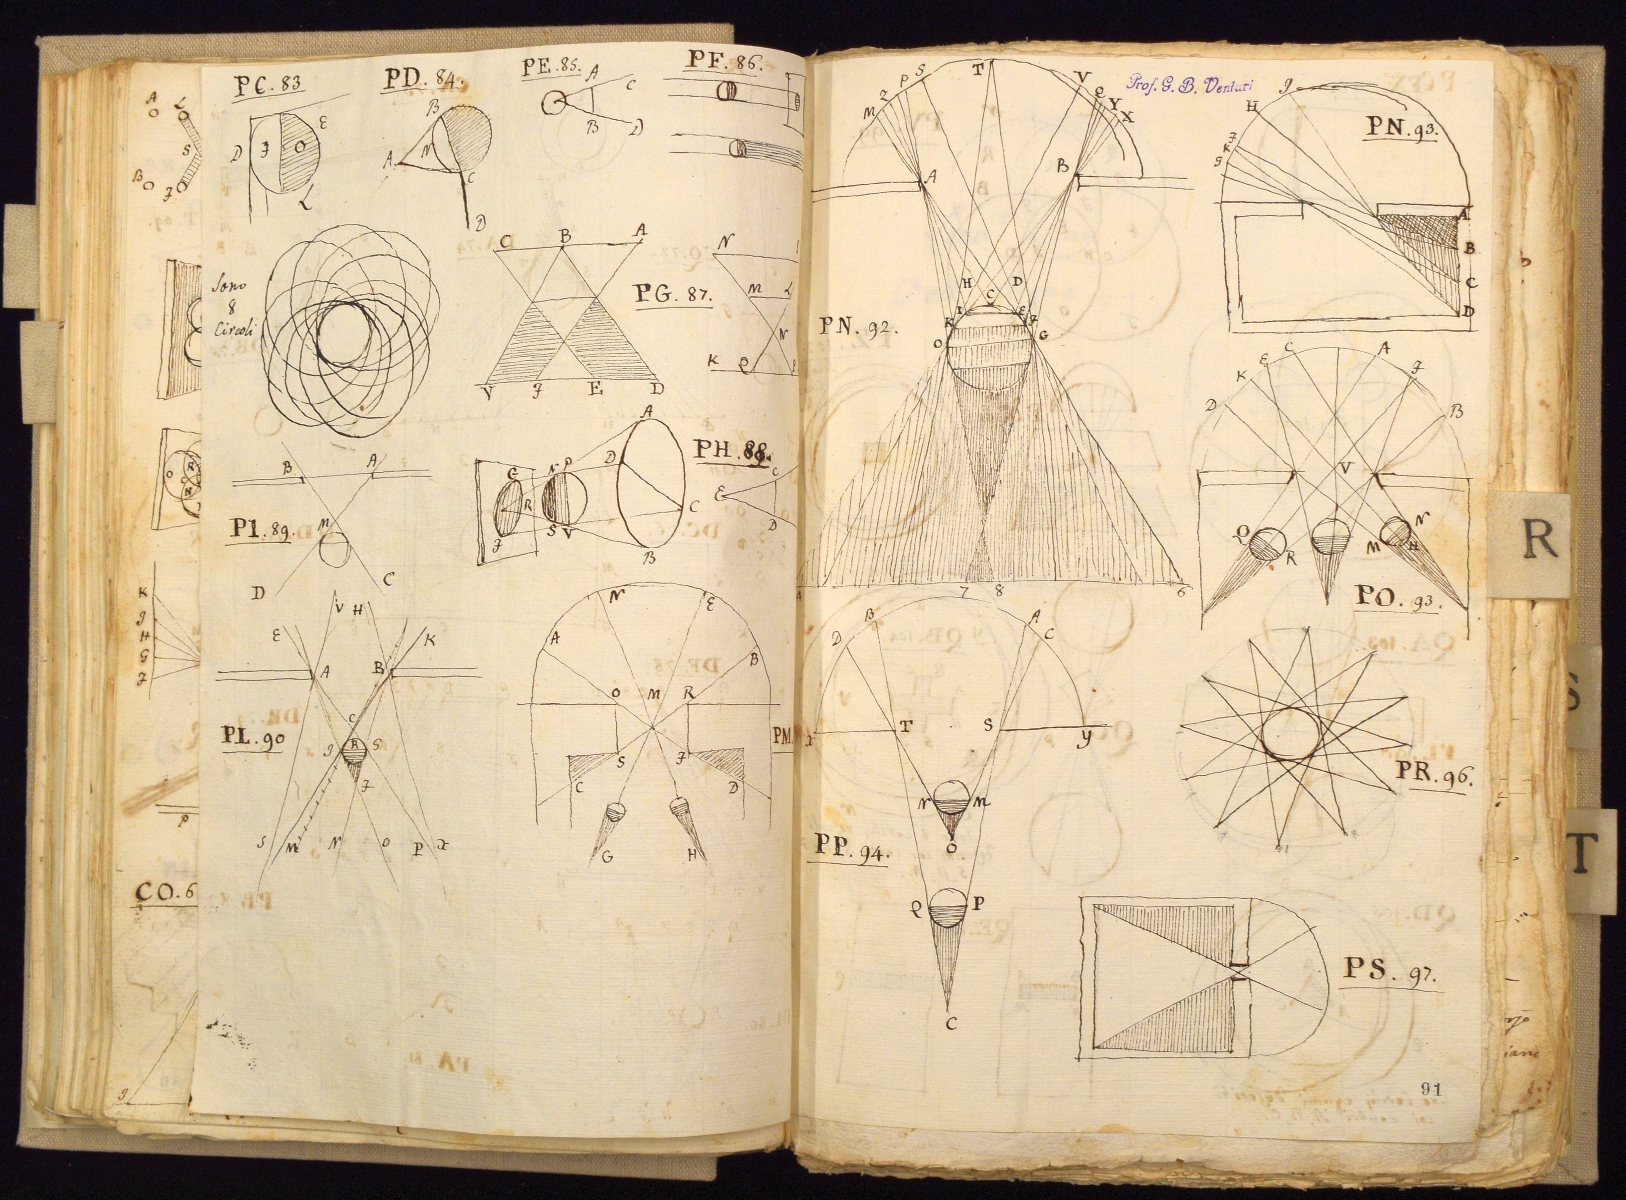 PC. 83
PD. 84.
PE. 85.
PF. 86.
Sono
8
Circoli
PG. 87.
PH. 88.
PI. 89.
PL. 90
PM
CO. 6
A
L
S
B
J
D
J
O
E
L
B
A
N
C
D
A
C
B
D
C
B
A
V
J
E
D
N
M
L
N
K
Q
B
A
N
D
C
G
N
P
D
A
R
S
V
C
J
B
E
C
D
K
J
H
G
J
E
V
H
K
A
B
C
J
R
G
J
S
M
N
O
P
X
N
E
A
B
O
M
R
S
J
C
D
G
H
P
Prof. G. B. Venturi
PN. 92.
PN. 93.
PO. 93.
PP. 94.
PR. 96.
PS. 97.
M
Z
P
S
T
V
Q
Y
X
A
B
H
D
C
K
I
E
Z
O
G
7
8
6
J
H
A
B
C
D
D
K
E
C
A
J
B
V
Q
R
M
N
H
D
B
A
C
X
T
S
Y
N
M
O
Q
P
C
91
R
S
T